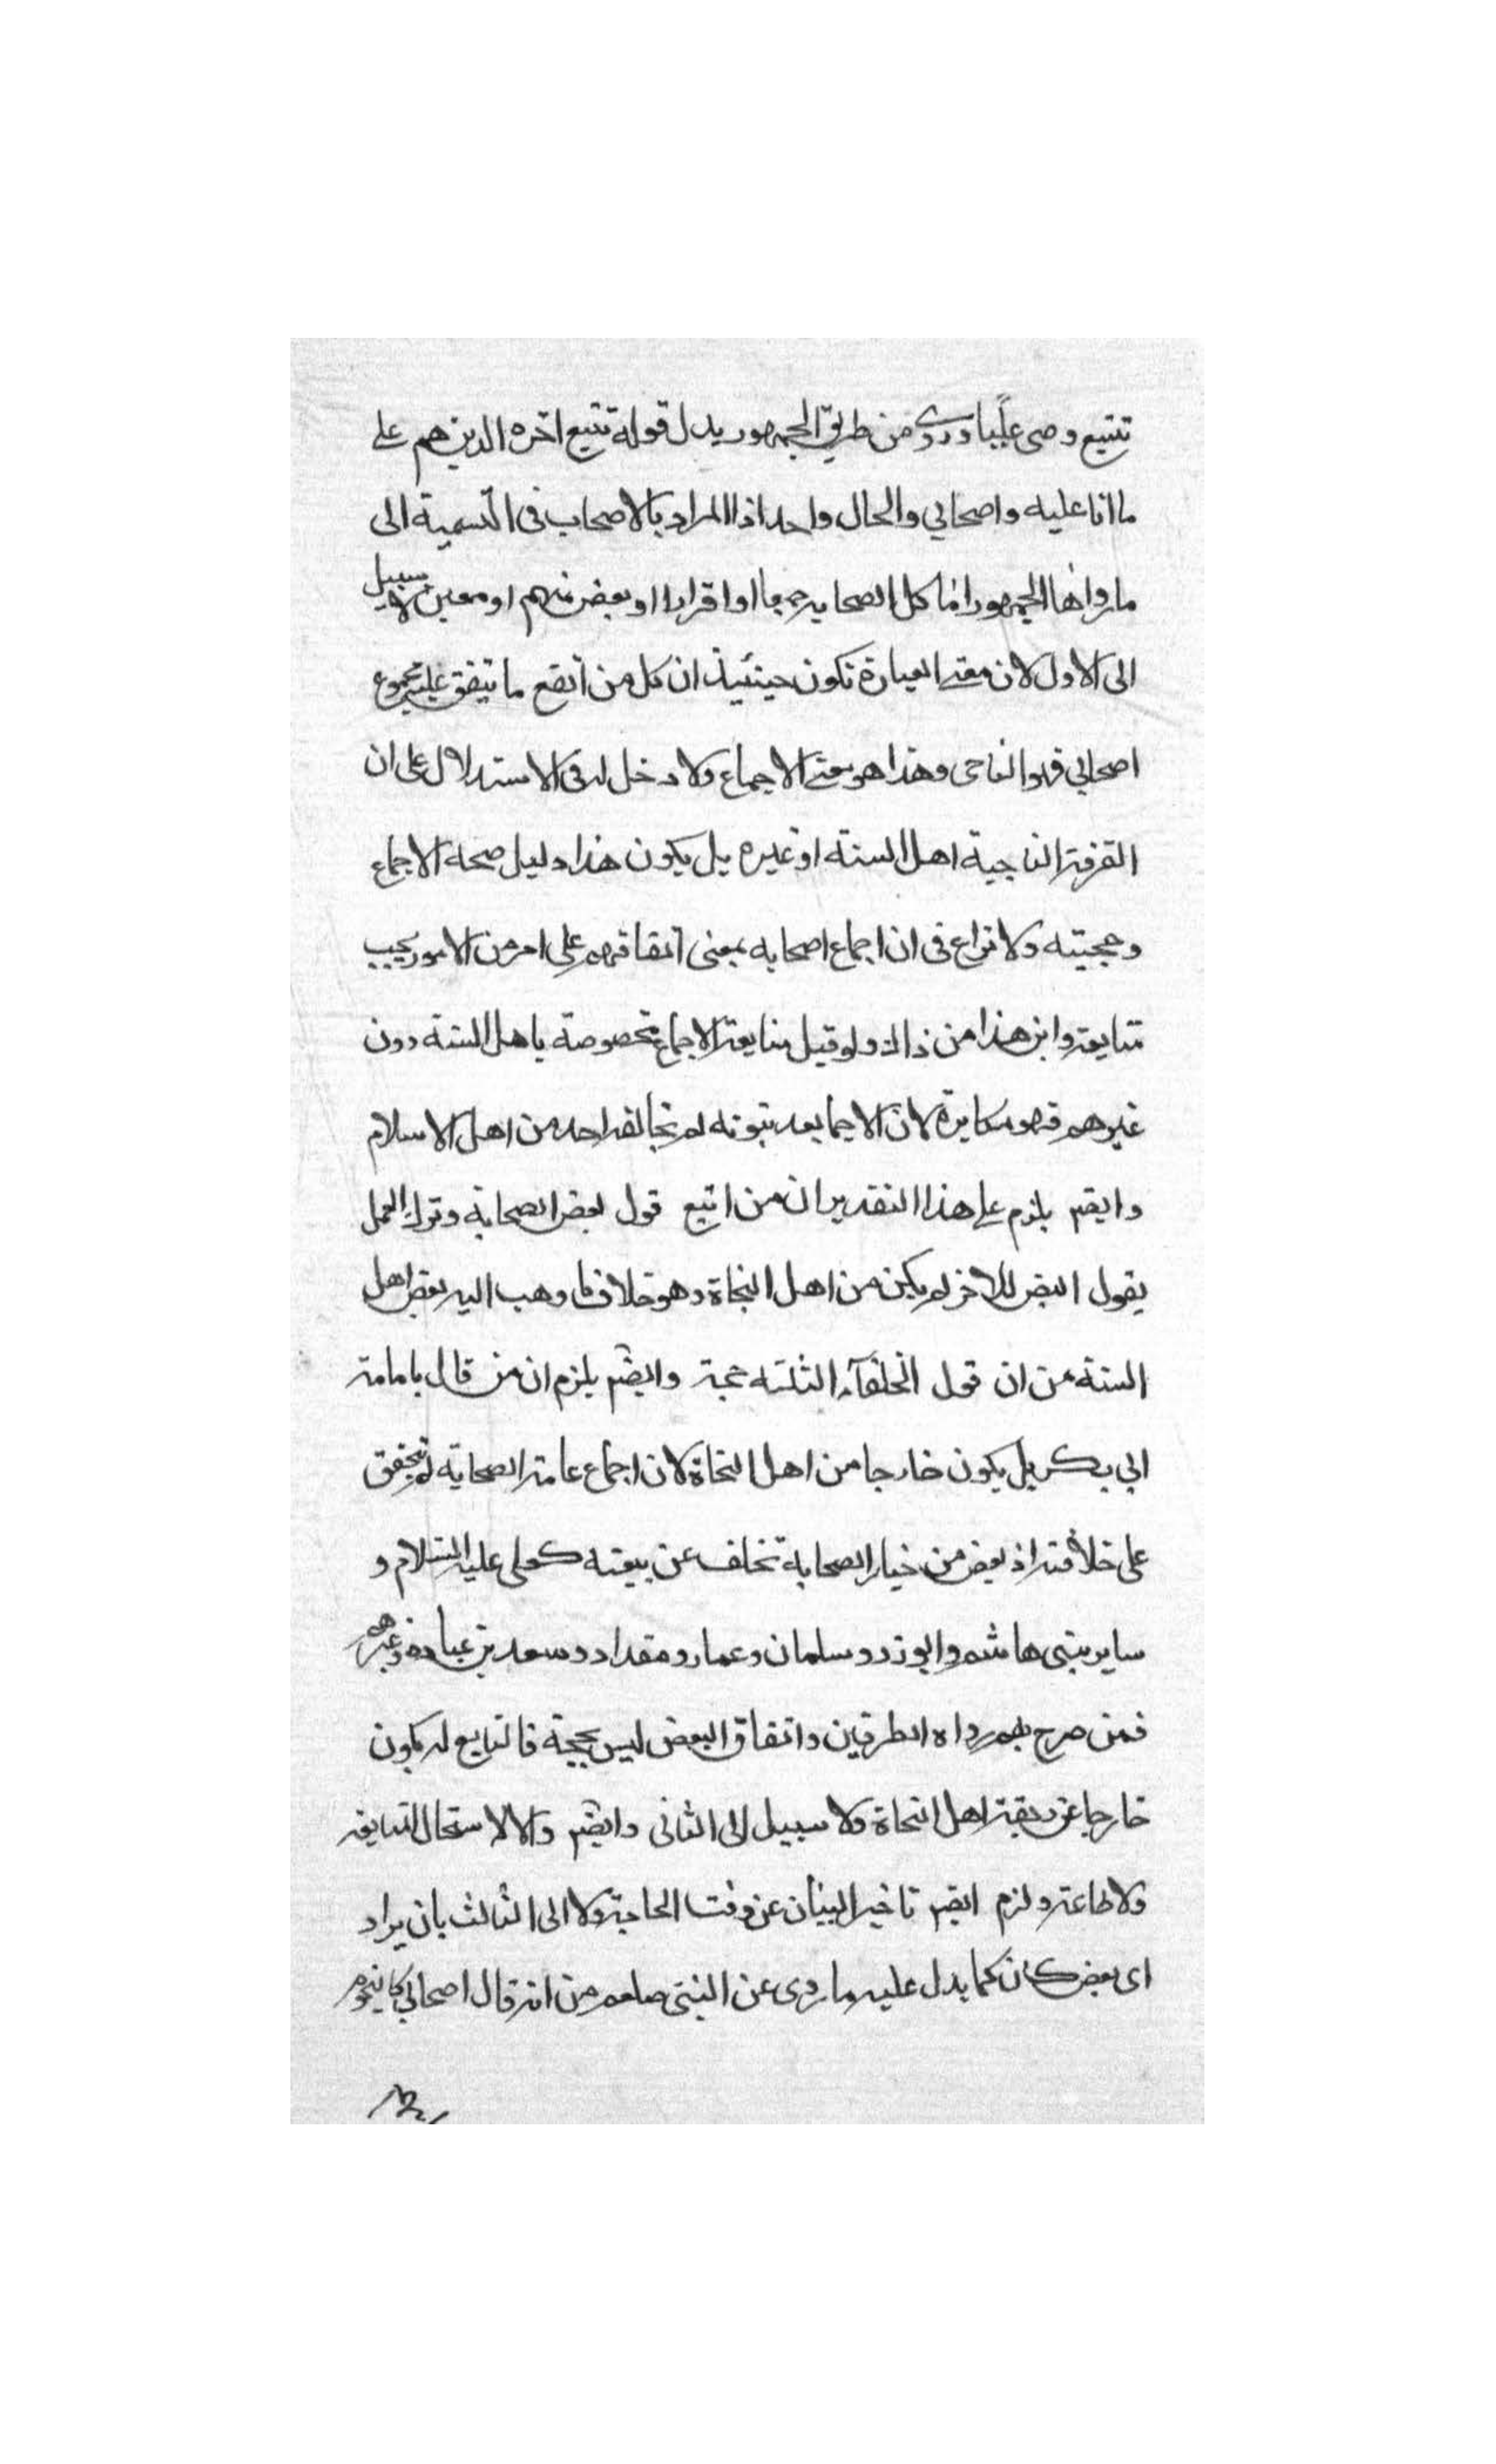 تتبع وصى عليا وروى من طريق الجمهور بدل قوله تتبع اخره الذين هم على
ما انا عليه واصحابي والحال واحد اذا المراد بالاصحاب فى التسمية الى
ما رواها الجمهور اما كل الصحابه جميعا او افرادا او بعض منهم او معين لا سبيل
الى الاول لان معنى العبارة تكون حينئيذ ان كل من اتبع ما يتفق عليه مجموع
اصحابي فهو الناجى وهذا هو معنى الاجماع ولا دخل له فى الاستدلال على ان
الفرقة الناجية اهل السنة او غيره بل يكون هذا دليل صحة الاجماع
وحجيته ولا نزاع فى ان اجماع اصحابه بمعنى اتفاقهم على امر من الامور يجب
متابعته واين هذا من ذالك ولو قيل متابعة الاجماع مخصوصة باهل السنة دون
غيرهم فهو مكابرة لان الاجماع بعد ثبوته لم يخالفه احد من اهل الاسلام
وايضم يلزم على هذا التقدير ان من اتبع قول بعض الصحابة وترك العمل
بقول البعض للاخر لم يكن من اهل النجاة وهو خلاف ما وهب اليه بعض اهل
السنة من ان قول الخلفآء الثلثه حجة وايضم يلزم ان من قال بامامة
ابي بكر بل يكون خارجا من اهل النجاة لان اجماع عامة الصحابة لم يتحقق
على خلافته اذ بعض من خيار الصحابة تخلف عن بيعته كعلى عليه السلام و
ساير بنى هاشم وابو ذر وسلمان وعمار ومقداد وسعد بن عباده وغيرهم
فمن صرح بهم رواه الطرفين واتفاق البعض ليس بحجة فالتابع له يكون
خارجا عن ربقة اهل النجاة ولا سبيل الى الثانى وايضم والا لاستحال المتابعة
ولا طاعة ولزم ايضم تاخير البيان عن وقت الحاجة ولا الى الثالث بان يراد
اى بعض كان كما يدل عليه ما روى عن النبى صلعم من انه قال اصحابي كالنجوم